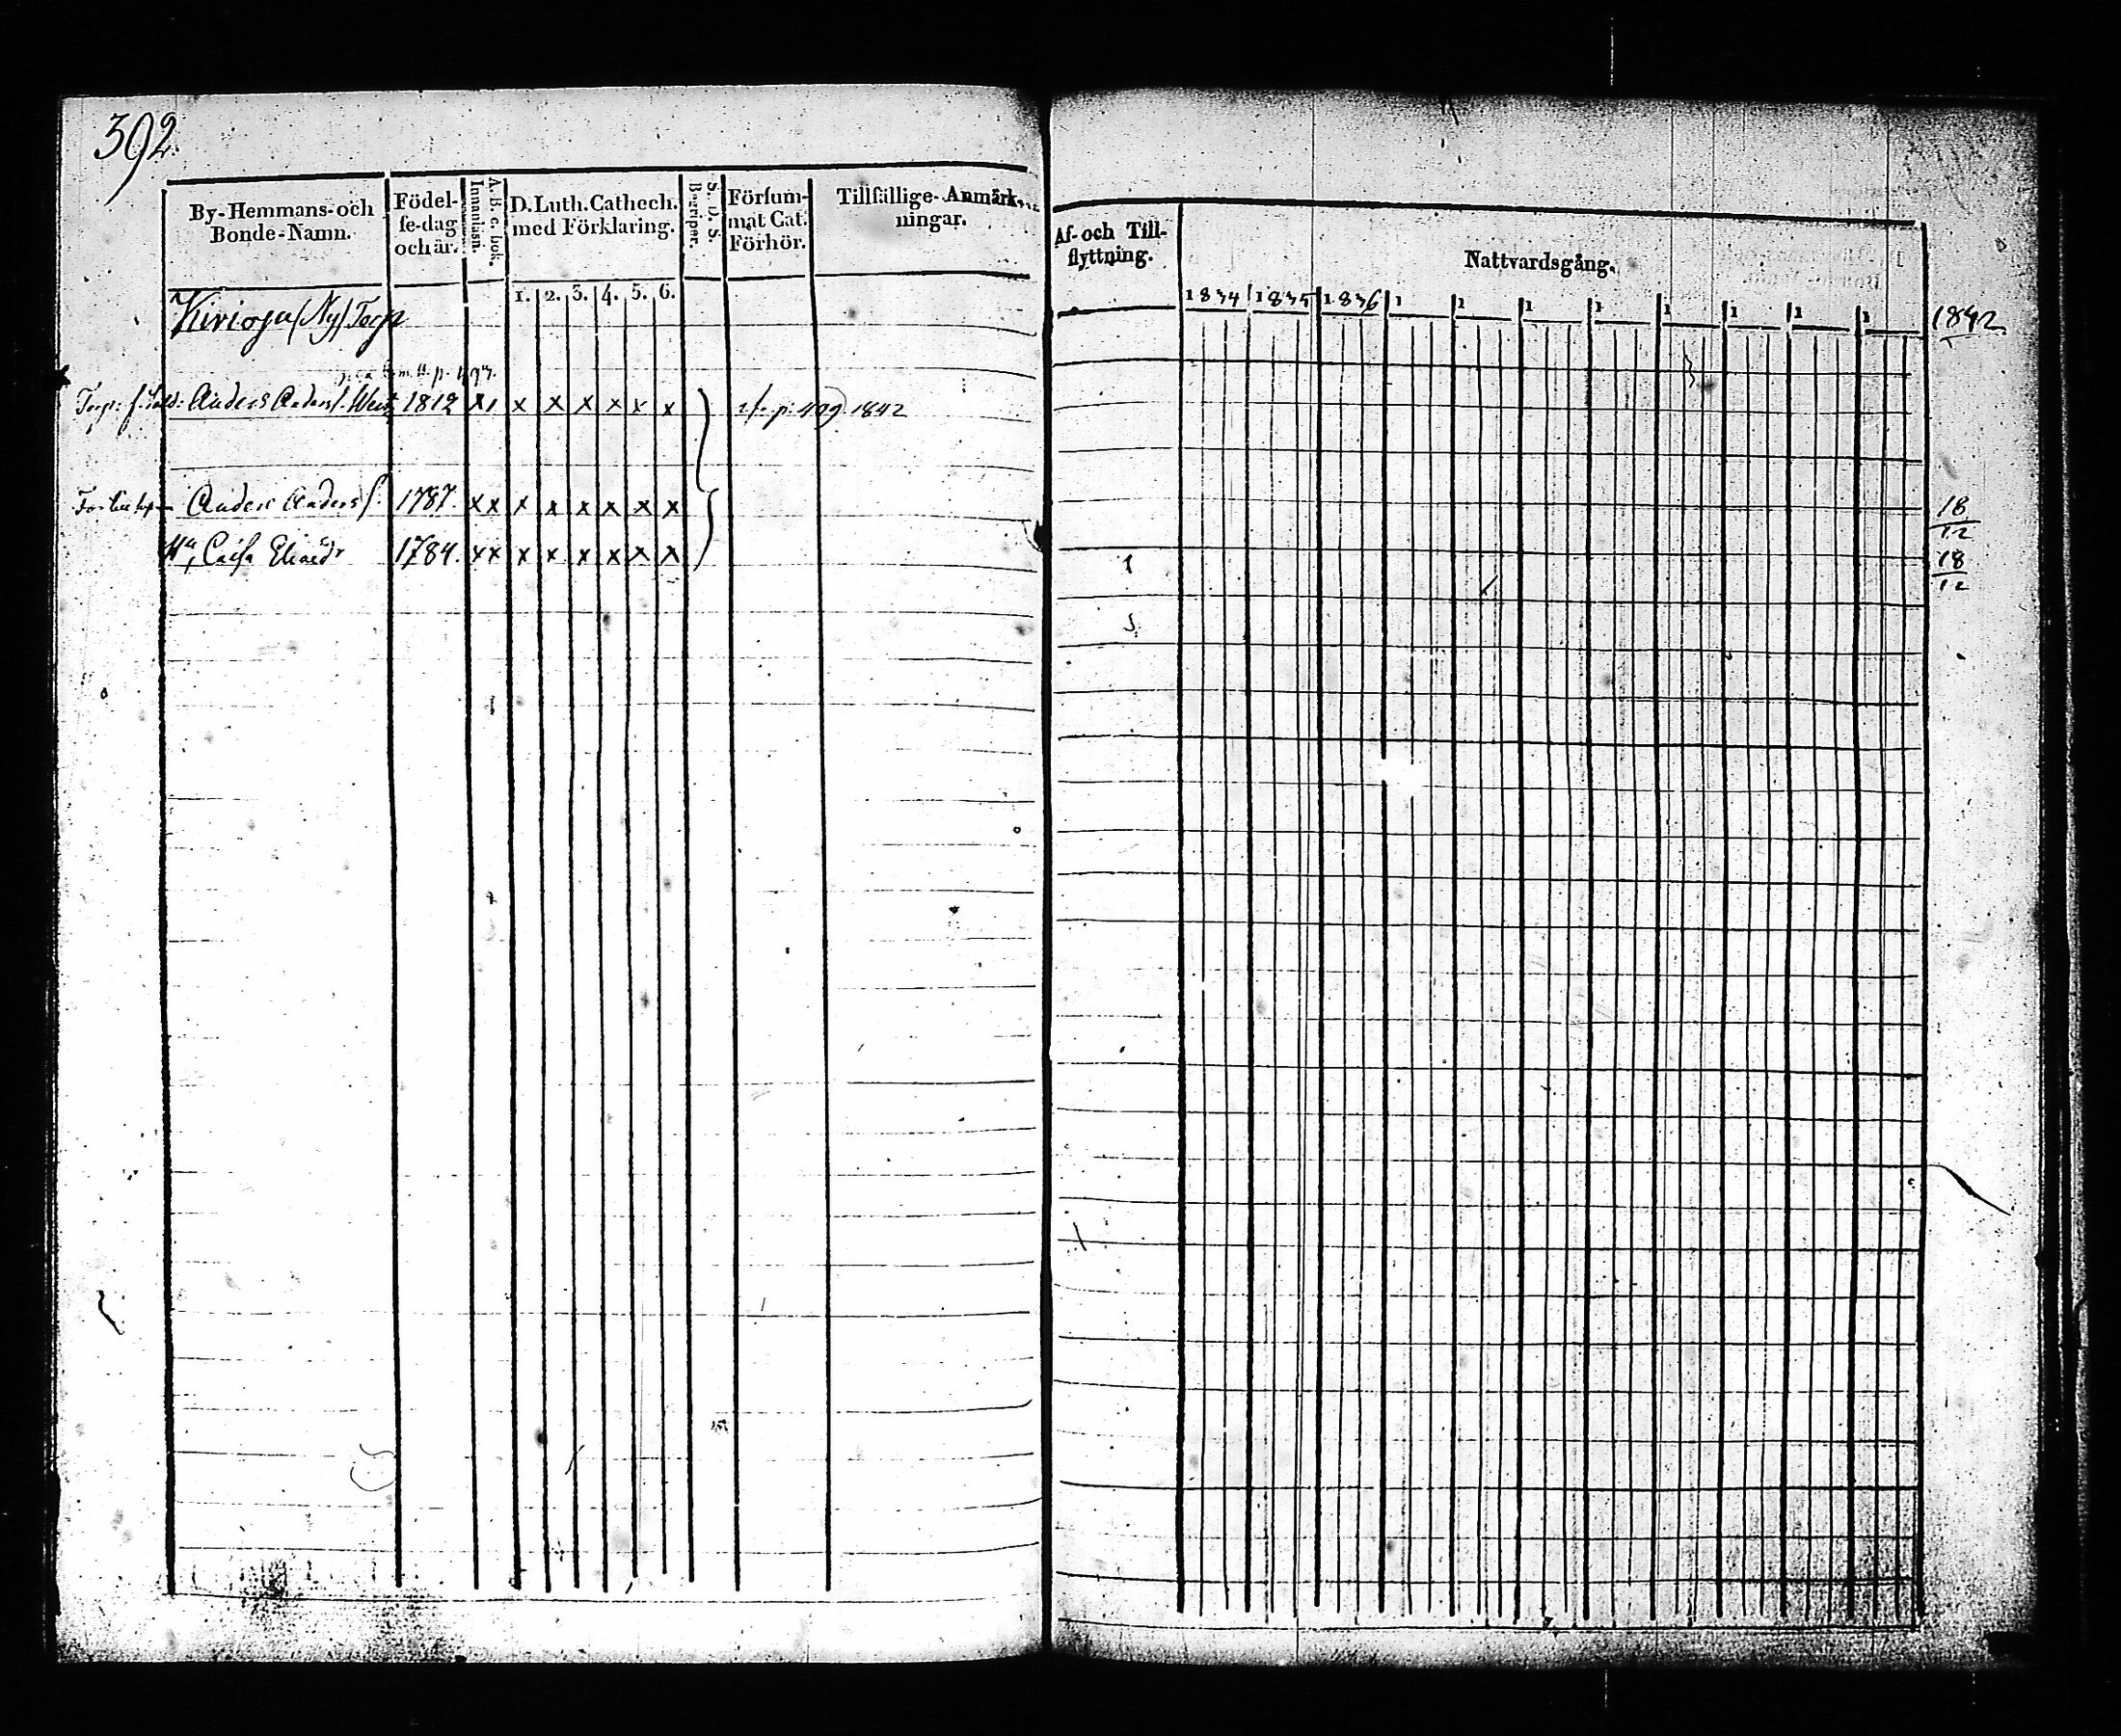 392.
By-Hemmans-och Bonde-Namn.
Födel-se-dag och år.
A. B. c. bok. Innantiläsn.
D. Luth. Cathech. med Förklaring.
S. D. S. Begriper.
Förſum-mat Cat. Förhör.
Tillfällige-Anmärk-ningar.
Af- och Till-flyttning.
Nattvardsgång.
1. 2. 3. 4. 5. 6.
1834 1835 1836 1 1 1 1 1 1 1 1 1842
Kirioja (Ny) Torp
p. 497.
Torp: Anders Anders ſ. 1812 x x x x x x x p. 409 1842
Anders Anders ſ. 1787. x x x x x x x x 18/12
Caisa Eliaedr 1784. x x x x x x x x 18/12